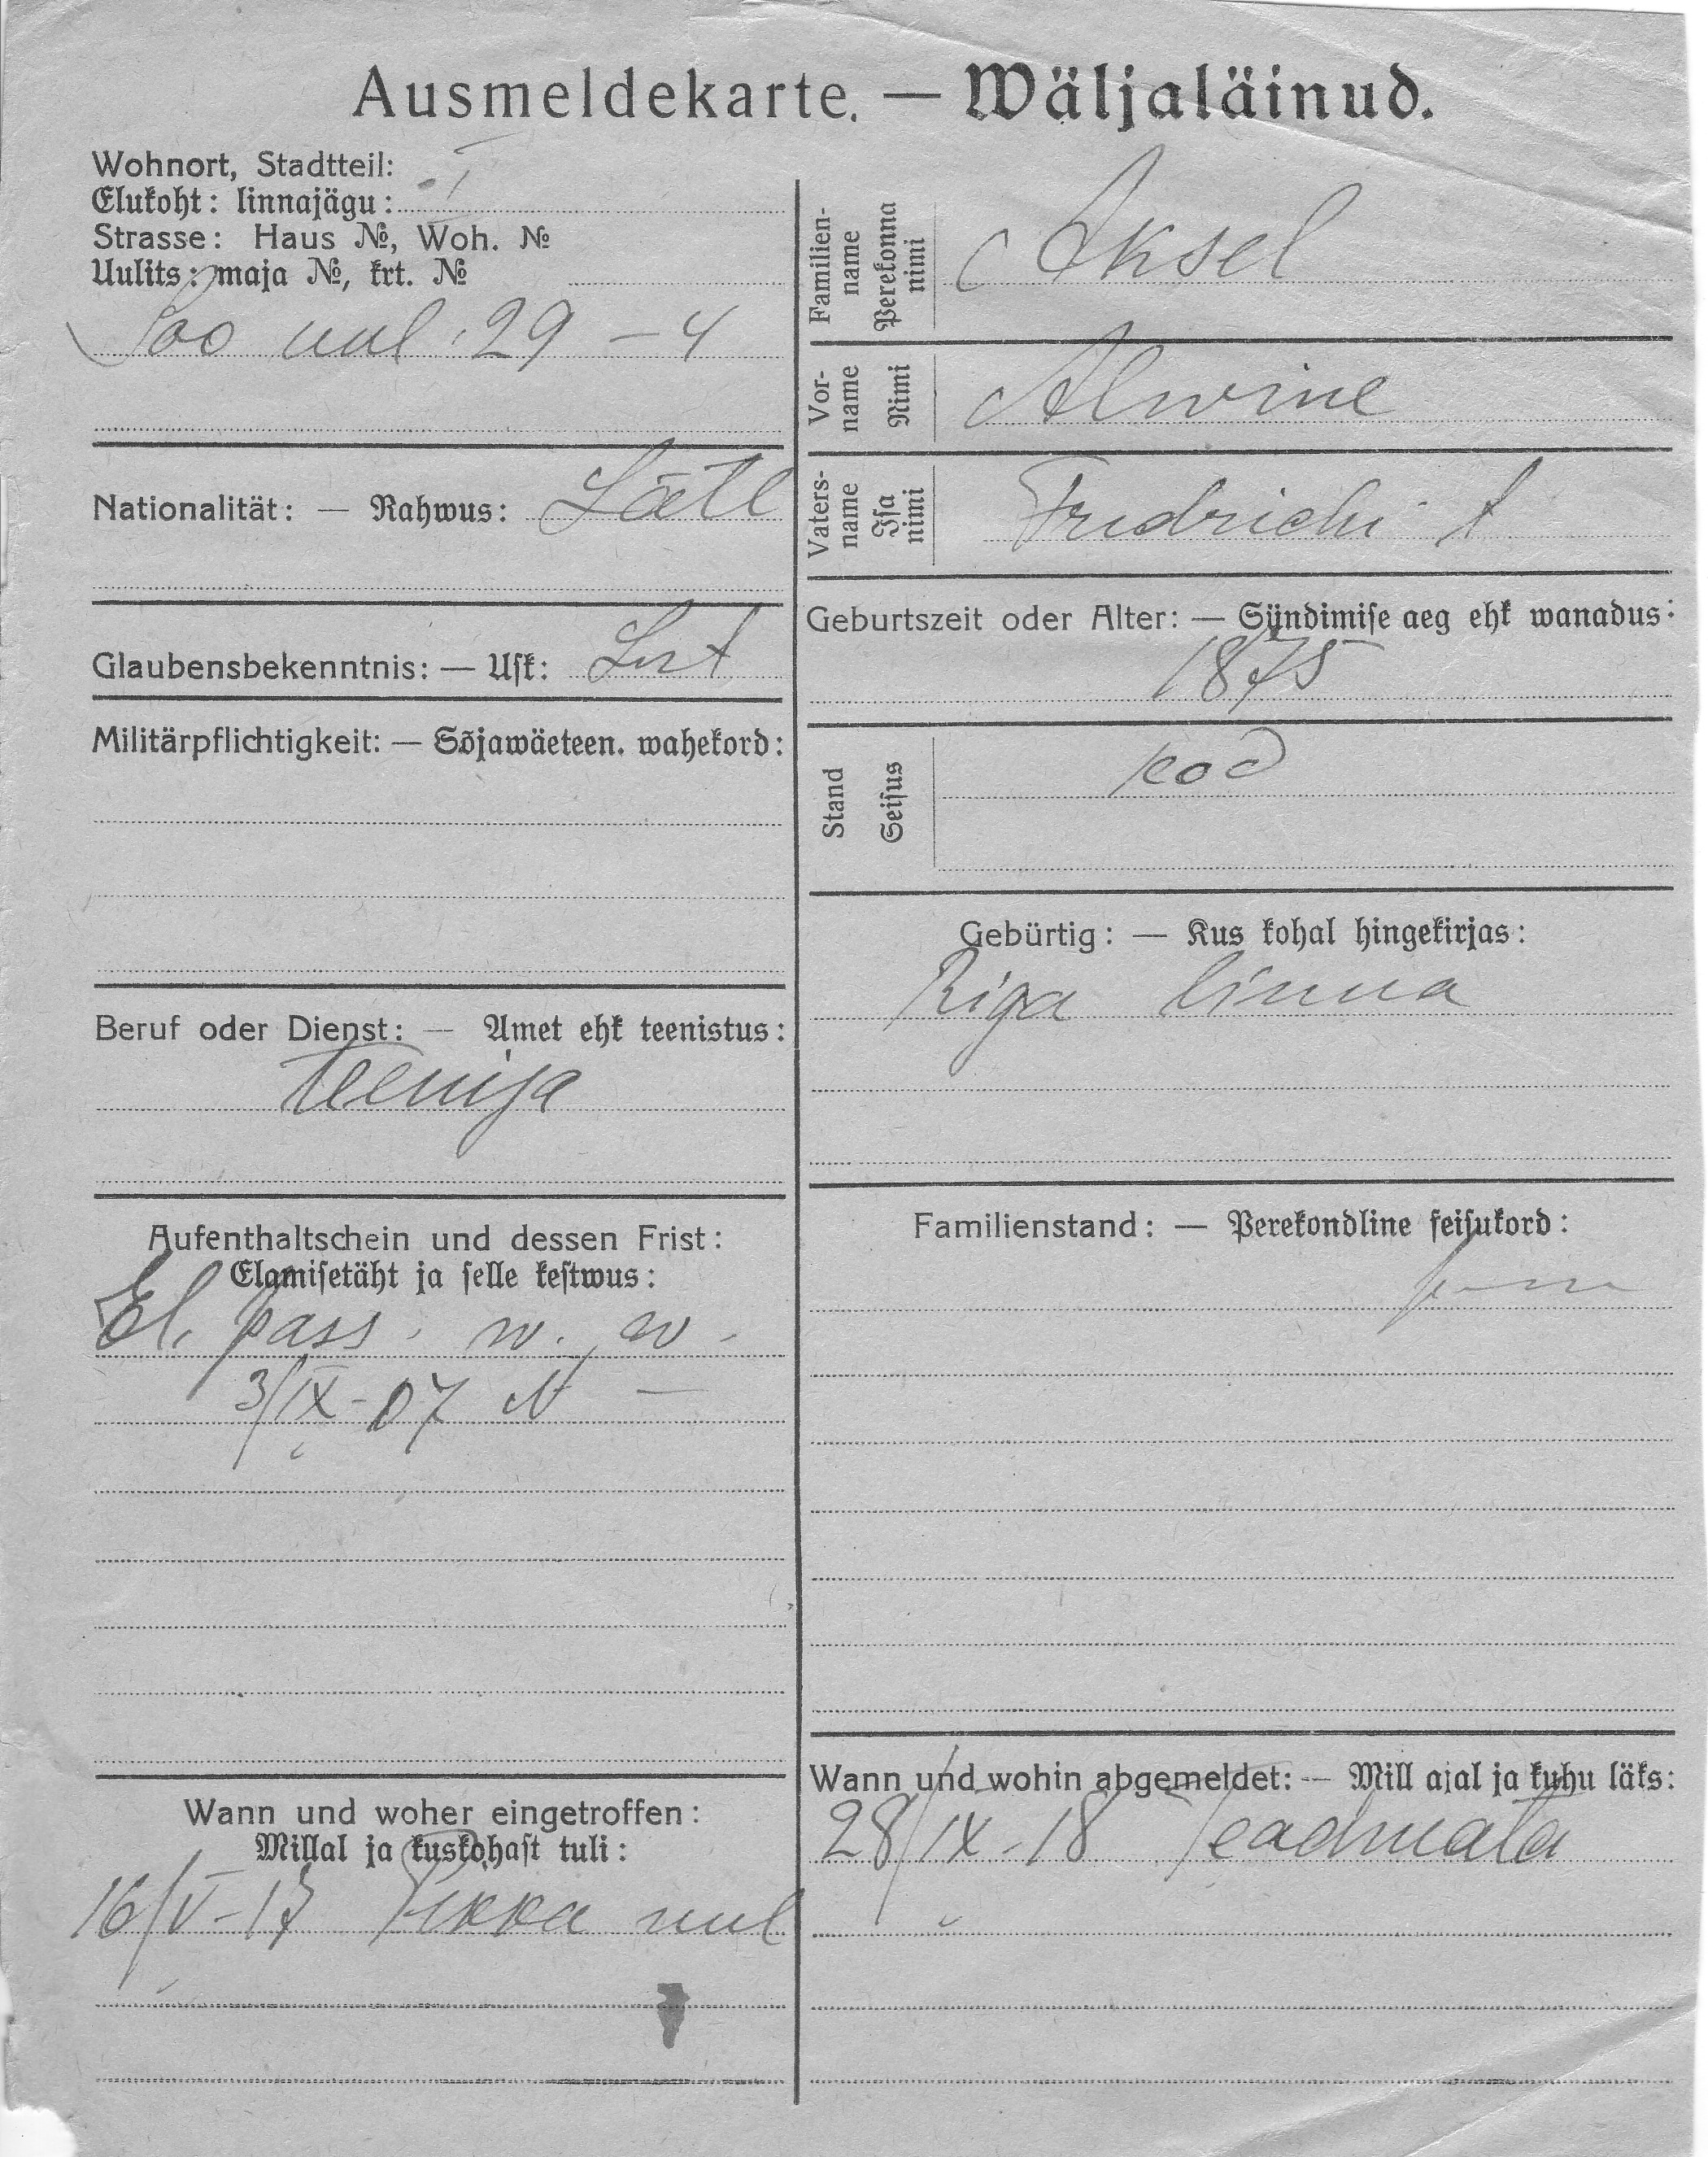 Ausmeldekarte. — Wäljaläinud.
Wohnort, Stadtteil:
Elukoht: linnajägu: I
Strasse: Haus №, Woh. №
Uulits: maja №, krt. №
Soo uul. 29 – 4
Nationalität: — Rahwus: Lätl
Glaubensbekenntnis: — Usk: Lut
Militärpflichtigkeit: — Sõjawäeteen. wahekord:
Beruf oder Dienst: — Amet ehk teenistus:
Teenija
Aufenthaltschein und dessen Frist:
Elamisetäht ja selle kestwus:
El. pass. w. w.
3/IX-07 N —
Wann und woher eingetroffen:
Millal ja kuskohast tuli:
16/V-17 uul
Familien-name Perekonna nimi Aksel
Vor-name Nimi Alwine
Vaters-name Isa nimi Fridrichi t
Geburtszeit oder Alter: — Sündimise aeg ehk wanadus:
1875
Stand Seisus kod
Gebürtig: — Kus kohal hingekirjas:
Riga linna
Familienstand: — Perekondline seisukord:
Wann und wohin abgemeldet: — Mill ajal ja kuhu läks:
28/IX-18 Teadmata